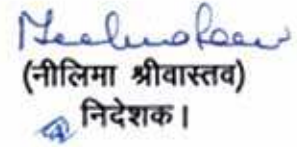 (नीलिमा श्रीवास्तव)
निदेशक।